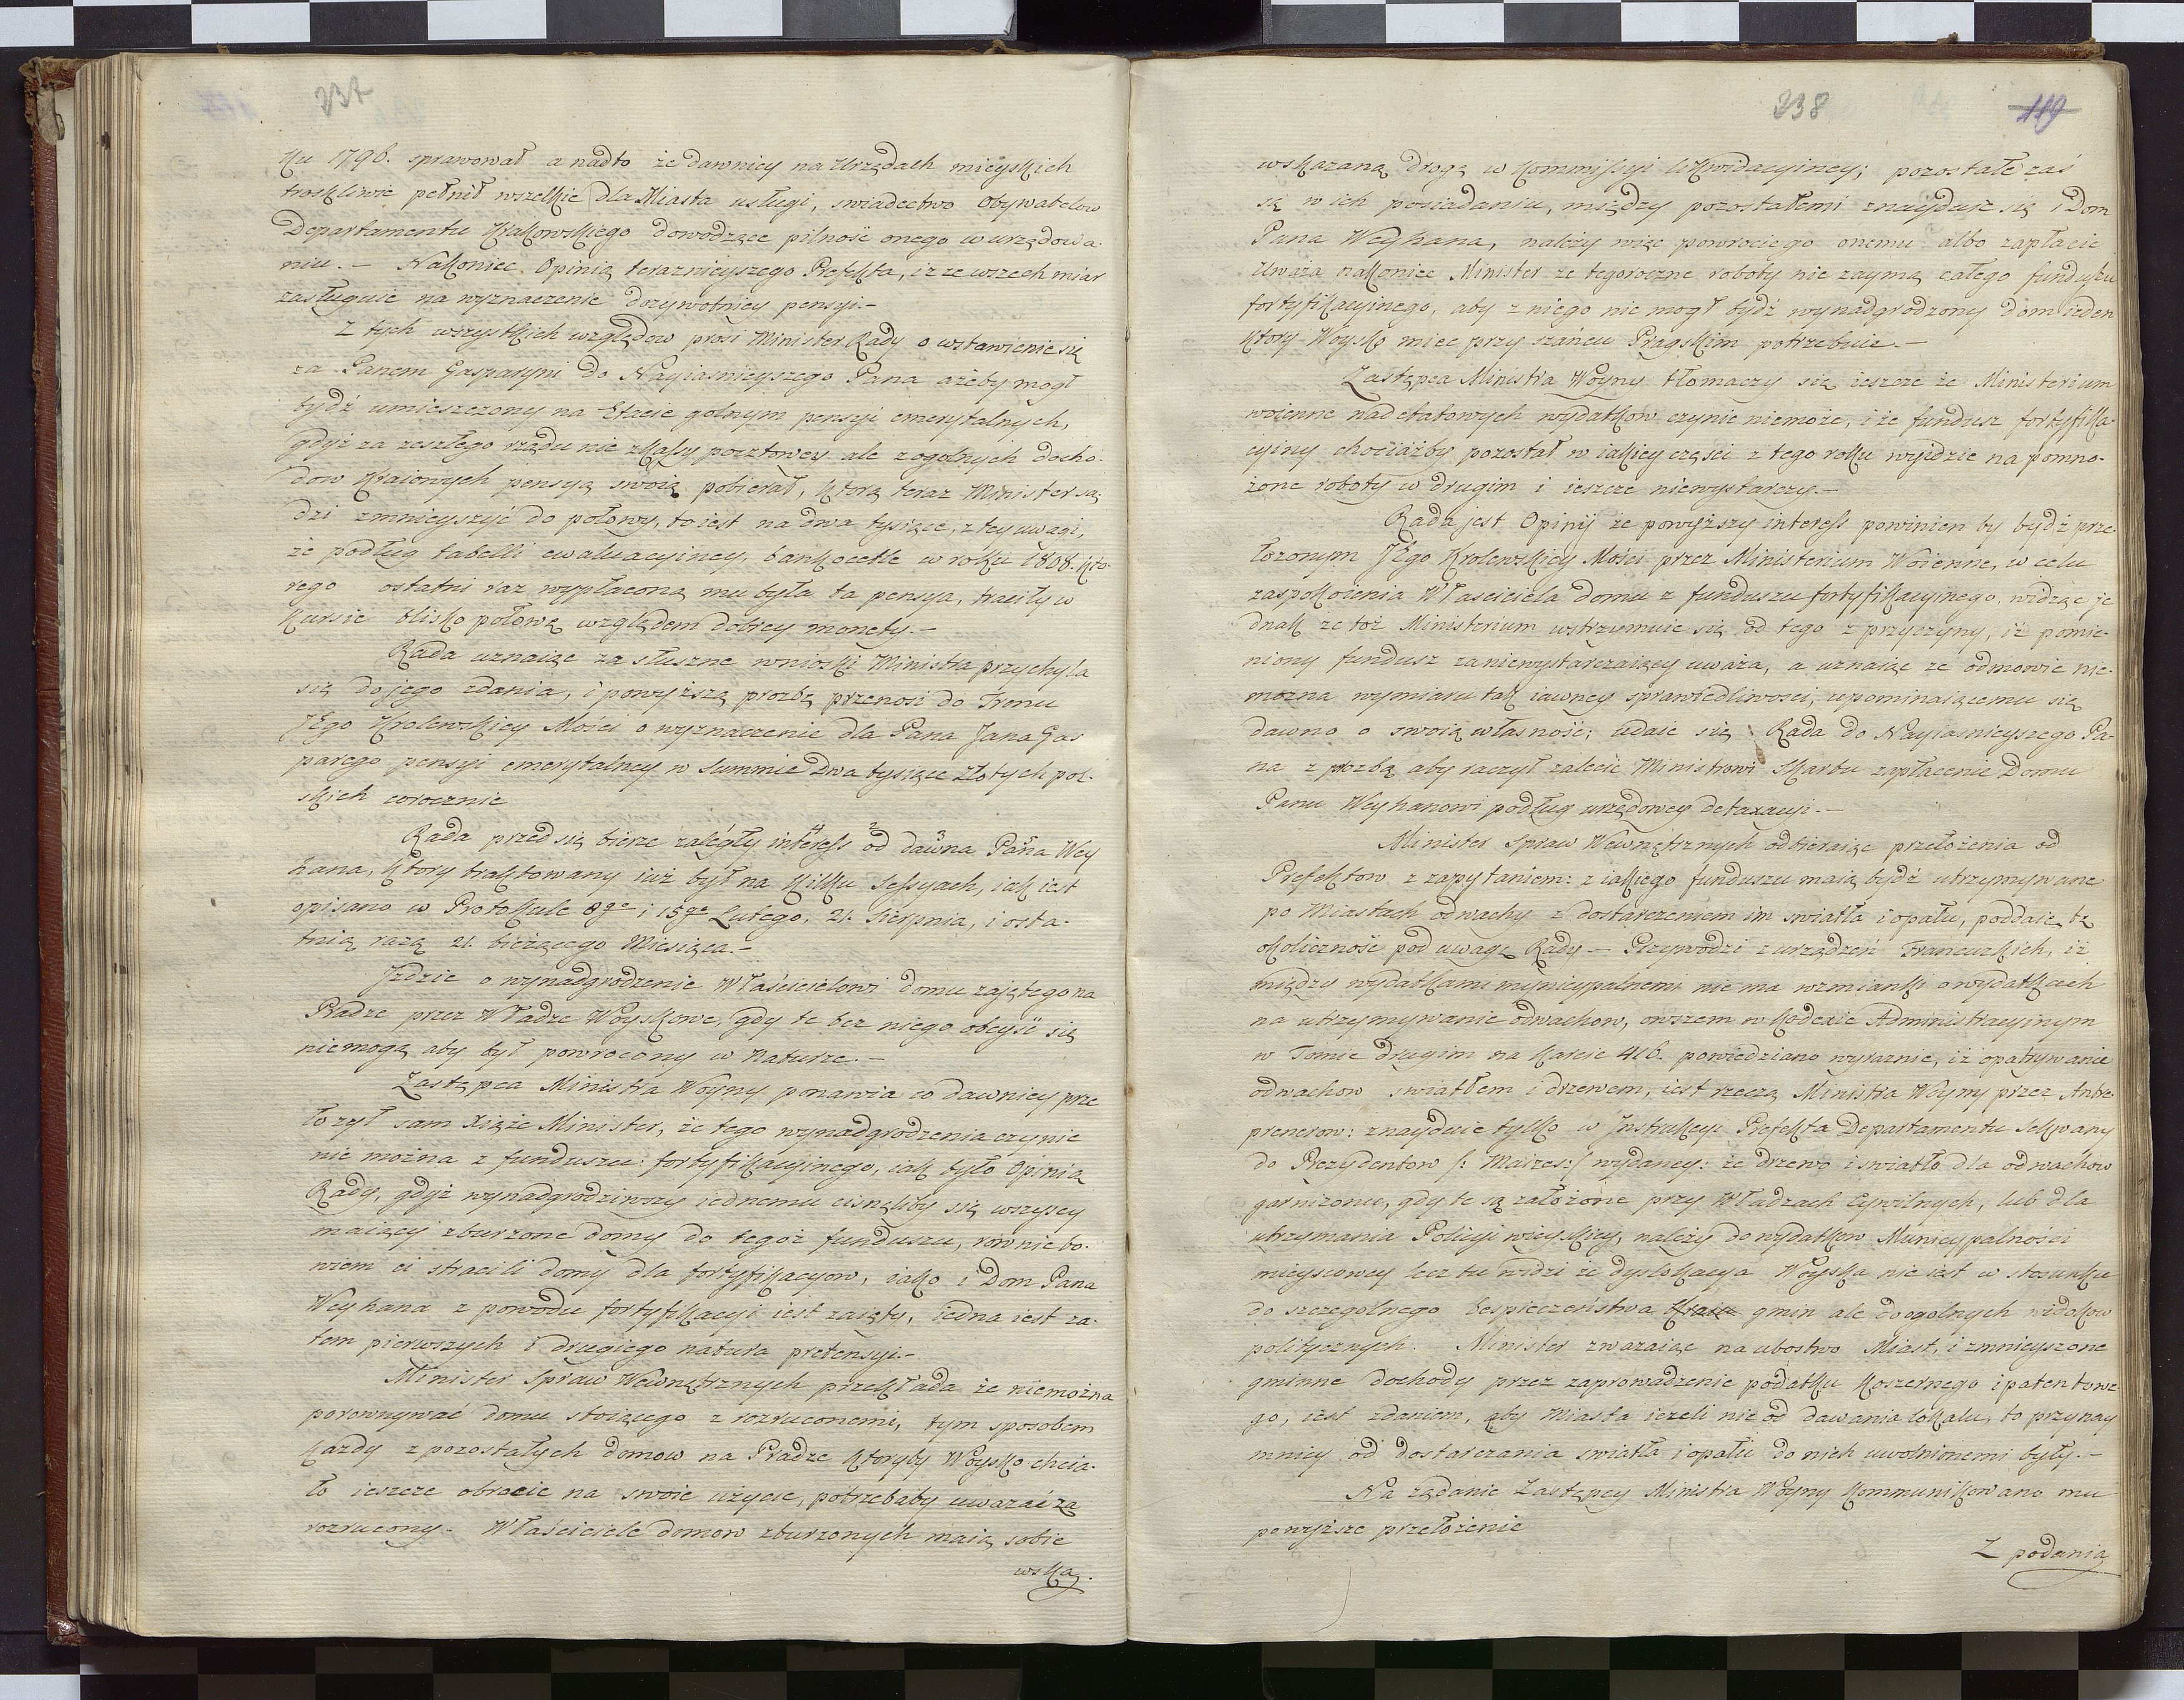 237
ku 1796. sprawował a nadto że dawniey na Urzędach mieyskich
troskliwie pełnił wszelkie dla Miasta usługi, swiadectwo Obywatelow
Departamentu Krakowskiego dowodzące pilność onego w urzędowa-
niu. — Nakoniec Opinią teraznieyszego Prefekta, iż ze wszech miar
zasługuie na wyznaczenie dozywotniey pensyi —
Z tych wszystkich względow prosi Minister Rady o wstawienie się
za Panem Gasparym do Nayiasnieyszego Pana ażeby mogł
bydź umieszczony na Etacie golnym pensyi emerytalnych,
gdyż za zeszłego rządu nie z Kassy pocztowey ale z ogolnych docho-
dow Kraiowych pensyą swoią pobierał, ktorą teraz Minister są-
dzi zmnieyszyć do połowy, to iest na dwa tysiące, z tey uwagi,
że podług tabelli ewaluacyiney, bankocetle w roku 1808. kto-
rego ostatni raz wypłaconą mu była ta pensya, traciły w
Kursie blisko połowę względem dobrey monety. —
Rada uznaiąc za słuszne wnioski Ministra przychyla
się do jego zdania, i powyższą prozbę przenosi do Tronu
JEgo Krolewskiey Mości o wyznaczenie dla Pana Jana Gas
parego pensyi emerytalney w Summie Dwa tysiące złotych pol-
skich corocznie
Rada przedsię bierze zaległy interess od dawna Pana Wey
hana, ktory traktowany iuż był na kilku Sessyach, iak iest
opisano w Protokule 8go i 15go Lutego, 21. Sierpnia, i osta-
tnią razą 21. bieżącego Miesiąca. —
Jdzie o wynadgrodzenie Właścicielowi domu zajętego na
Pradze przez Władze Woyskowe, gdy te bez niego obeyść się
niemogą aby był powrocony w Naturze. —
Zastępca Ministra Woyny ponawia co dawniey prze
łożył sam Xiąże Minister, że tego wynadgrodzenia czynic
nie można z funduszu fortyfikacyinego, iak było Opinią
Rady, gdyż wynadgrodziwszy iednemu cisnęliby się wszyscy
maiący zburzone domy do tegoż funduszu, rownie bo-
wiem ci stracili domy dla fortyfikacyow, iako i Dom Pana
Weyhana z powodu fortyfikacyi iest zaięty, iedna iest za-
tem pierwszych i drugiego natura pretensyi. —
Minister Spraw Wewnętrznych przekłada że niemożna
porownywać domu stoiącego z rozruconemi, tym sposobem
każdy z pozostałych domow na Pradze ktoryby Woysko chcia-
ło ieszcze obrocic na swoie użycie, potrzebaby uważać za
rozrucony. Właściciele domow zburzonych maią sobie
wska-
238
119
wskazaną drogę w Kommissyi likwidacyiney; pozostałe zaś
są w ich posiadaniu, między pozostałemi znayduie się i Dom
Pana Weyhana, należy więc powrocic go onemu albo zapłacic
Uważa nakoniec Minister ze tegoroczne roboty nie zaymą całego funduszu
fortyfikacyinego, aby z niego nie mogł bydź wynadgrodzony dom ieden
ktory Woysko miec przy szańcu Pragskim potrzebuie. —
Zastępca Ministra Woyny tłomaczy się ieszcze że Ministerium
woienne nadetatowych wydatkow czynic niemoże, i że fundusz fortyfika-
cyiny chociażby pozostał w iakiey części z tego roku wyidzie na pomno-
żone roboty w drugim i ieszcze niewystarczy. —
Rada jest Opinij że powyższy interess powinien by bydź prze-
łożonym JEgo Krolewskiey Mości przez Ministerium Woienne, w celu
zaspokoienia Właściciela domu z funduszu fortyfikacyinego, widząc je
dnak ze toż Ministerium wstrzymuie się od tego z przyczyny, iż pomie-
niony fundusz zaniewystarczaiący uważa, a uznaiąc ze odmowic nie-
można wymiaru tak iawney sprawiedliwości, upominaiącemu się
dawno o swoią własność; udaie się Rada do Nayiasnieyszego Pa-
na z prozbą aby raczył zalecic Ministrowi Skarbu zapłacenie Domu
Panu Weyhanowi podług urzędowey detaxacyi. —
Minister Spraw Wewnętrznych odbieraiąc przełożenia od
Prefektow z zapytaniem: z iakiego funduszu maią bydź utrzymywane
po Miastach odwachy z dostarczeniem im swiatła i opału, poddaie tę
okoliczność pod uwagę Rady — Przywodzi z urządzeń Francuzkich, iż
między wydatkami municypalnemi nie ma wzmianki o wydatkach
na utrzymywanie odwachow, owszem w Kodexie Administracyinym
w Tomie drugim na karcie 416. powiedziano wyraznie, iż opatrywanie
odwachow swiatłem i drzewem, iest rzeczą Ministra Woyny przez Antre-
prenerow: znayduie tylko w Jnstrukcyi Prefekta Departamentu Sekwany
do Prezydentow /: Maires :/ wydaney: że drzewo i swiatło dla odwachow
garnizonu, gdy te są założone przy Władzach Cywilnych, lub dla
utrzymania Policyi mieyskiey, należy do wydatkow Municypalności
mieyscowey lecz tu widzi że dyslokacya Woyska nie iest w stosunku
do szczegolnego bespieczeństwa Kraiu gmin ale do ogolnych widokow
politycznych. Minister zważaiąc na ubostwo Miast, i zmnieyszone
gminne dochody przez zaprowadzenie podatku koszernego i patentowe-
go, iest zdaniem, aby Miasta ieżeli nie od dawania lokalu, to przynay
mniey od dostarczania swiatła i opału do nich uwolnionemi były. —
Na żądanie Zastępcy Ministra Woyny kommunikowano mu
powyższe przełożenie
Z podania